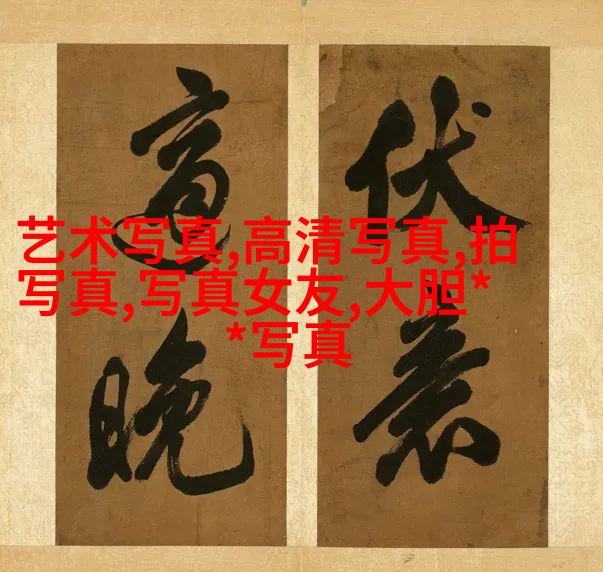 伏
適晚
艺术写真,高清写真,拍
写真,写真女友,大胆*
*写真